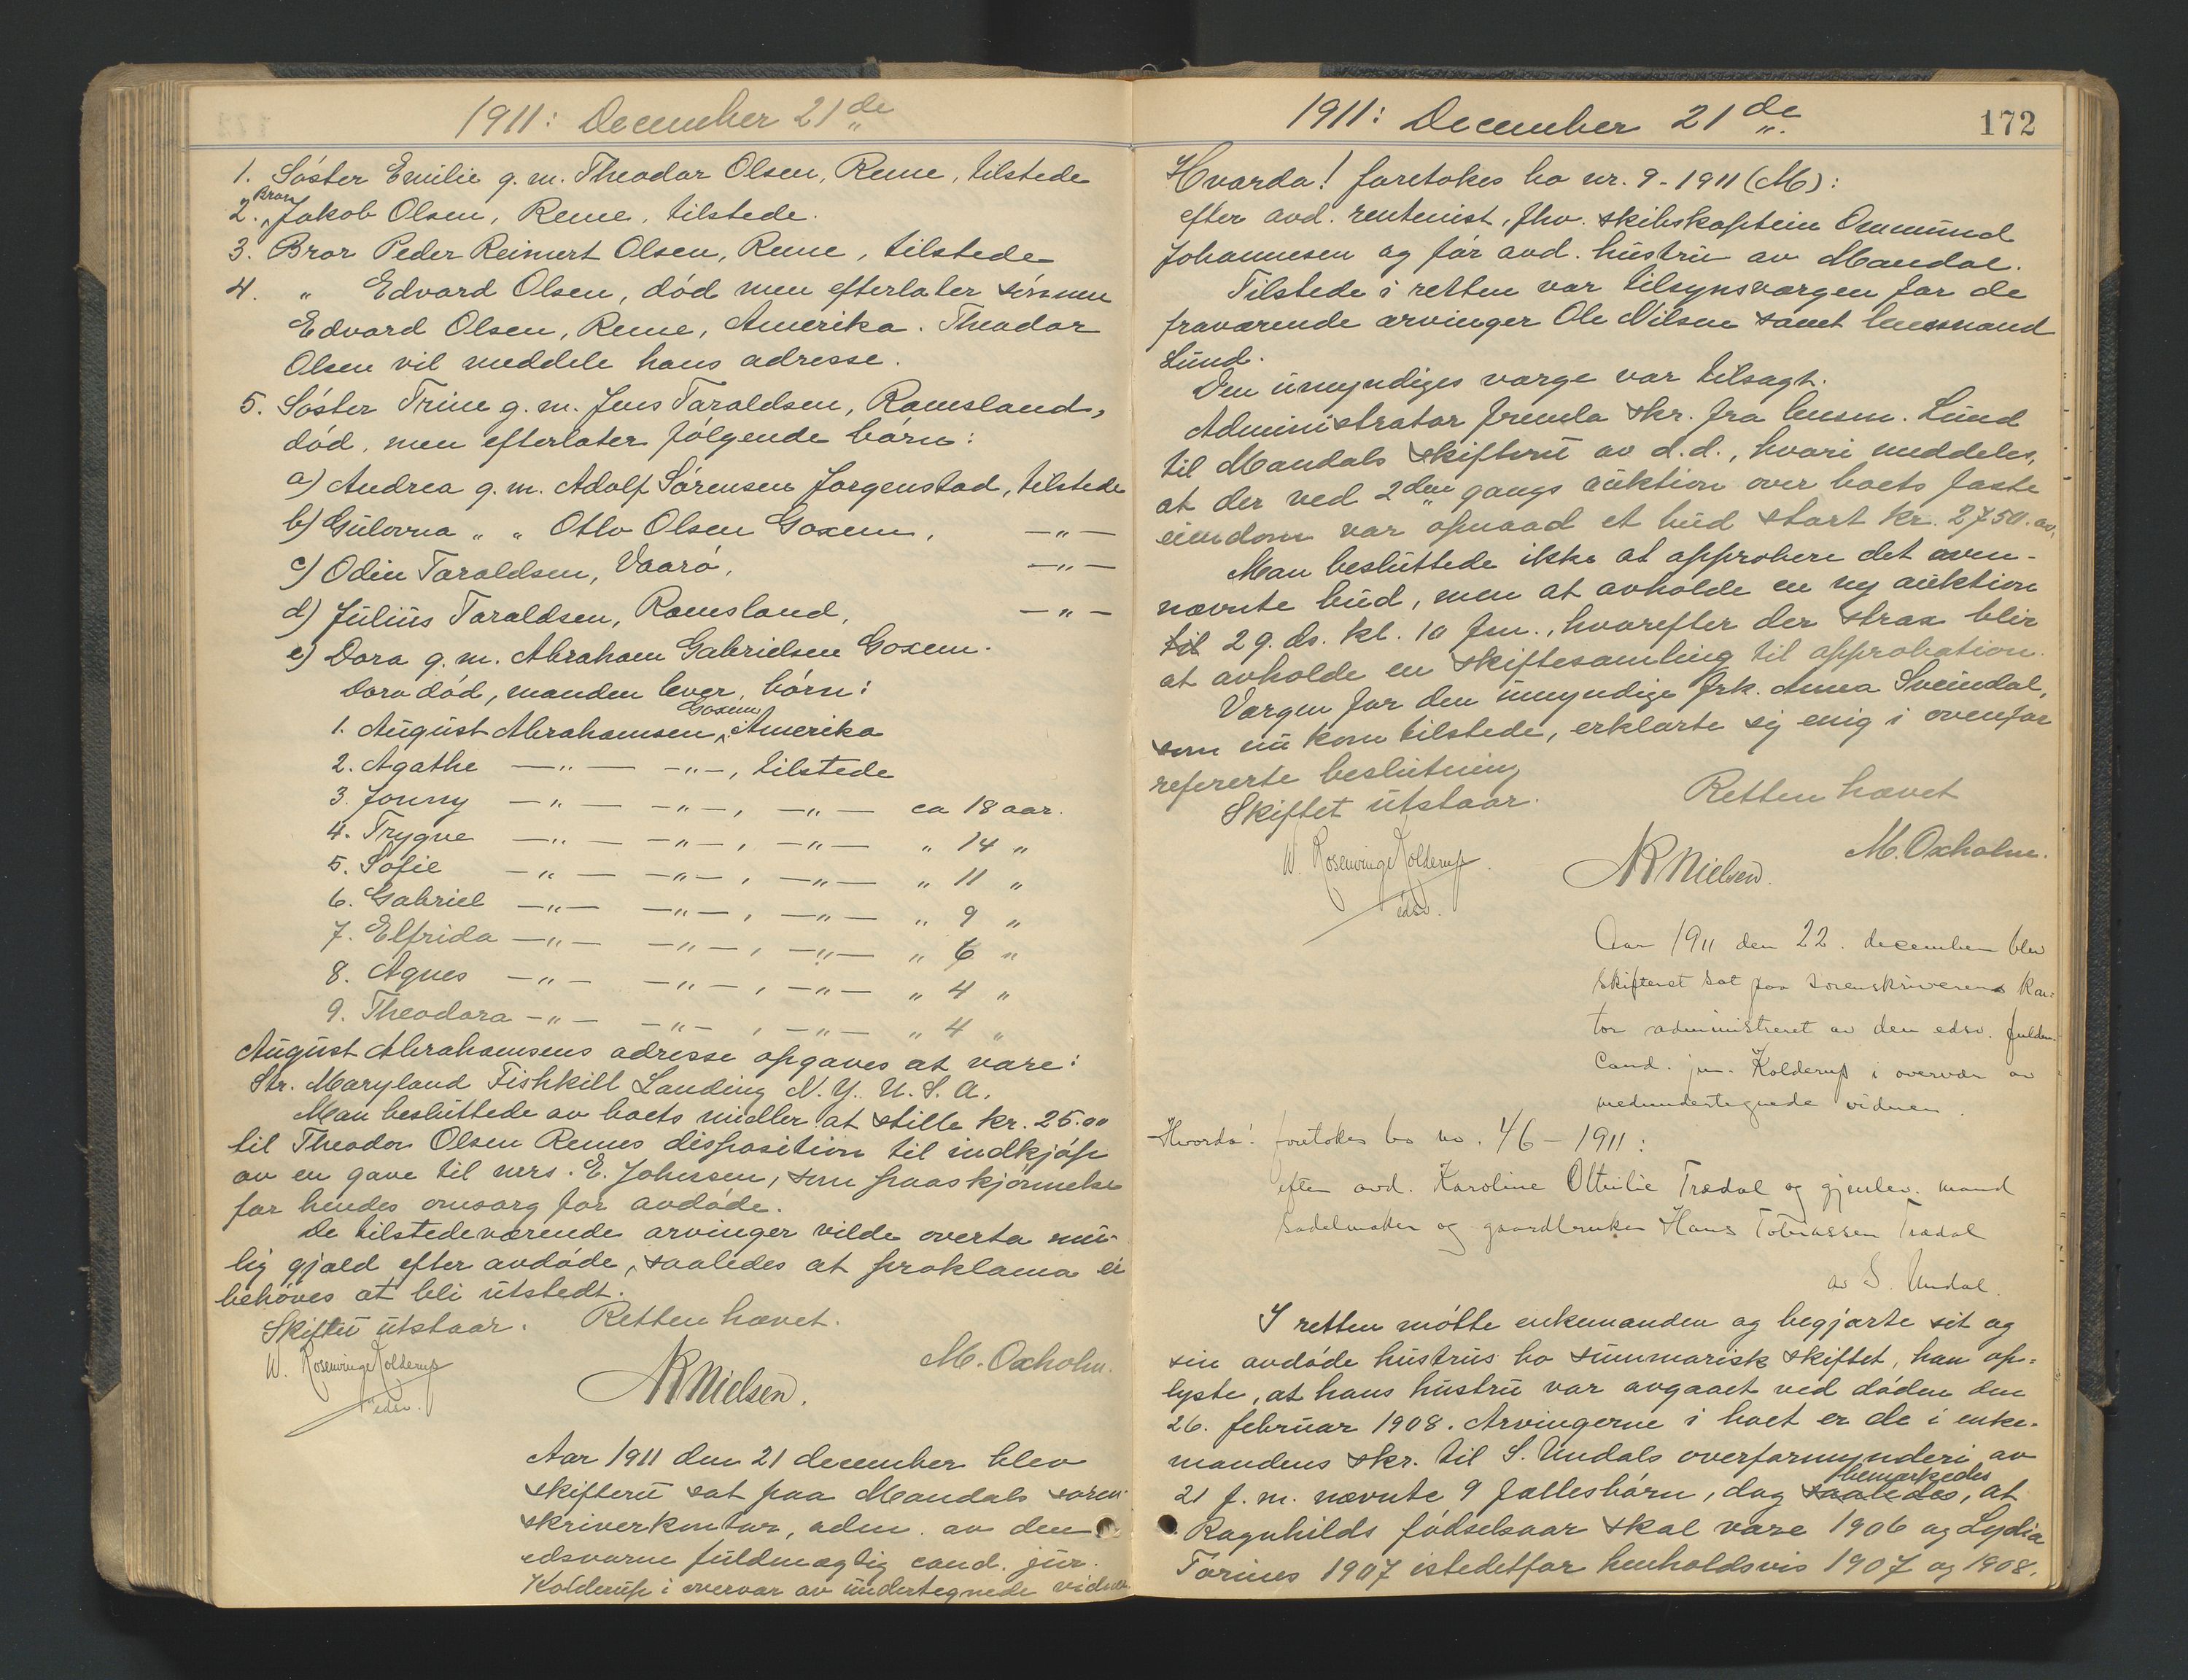 1911: December 21de
1. Søster Emilie g. m. Theodor Olsen, Reme, tilstede
2. Bror Jakob Olsen, Reme, tilstede.
3. Bror Peder Reinert Olsen, Reme, tilstede
4. " Edvard Olsen, død men efterlater sønnen
Edvard Olsen, Reme, Amerika. Theodor
Olsen vil meddele hans adresse.
5. Søster Trine g. m. Jens Taraldsen, Ramsland,
død, men efterlater følgende børn:
a) Andrea g. m. Adolf Sørensen Jorgenstad, tilstede
b) Gulovna " " Otto Olsen Goxem, —"—
c) Odin Taraldsen, Vaarø, —"—
d) Julius Taraldsen, Ramsland, —"—
e) Dora g. m. Abraham Gabrielsen Goxem.
Dora død, manden lever, børn:
1. August Abrahamsen Goxem, Amerika
2. Agathe —"— —"—, tilstede
3. Jonny —"— —"—, —"— ca 18 aar.
4. Trygve —"— —"—, —"— " 14 "
5. Sofie —"— —"—, —"— " 11 "
6. Gabriel —"— —"—, —"— " 9 "
7. Elfrida —"— —"—, —"— " 6 "
8. Agnes —"— —"—, —"— " 4 "
9. Theodora —"— —"—, —"— " 4 "
August Abrahamsens adresse opgaves at være:
Str. Maryland Fishkill Landing N. Y. U. S. A.
Man besluttede av boets midler at stille kr. 25.00
til Theodor Olsen Remes disposition til indkjøp
av en gave til mrs. E. Johnsen, som paaskjønnelse
for hendes omsorg for avdøde.
De tilstedeværende arvinger vilde overta mu-
lig gjæld efter avdøde, saaledes at proklama ei
behøves at bli utstedt.
Skiftet utstaar. Retten hævet.
W. Rosenvinge Kolderup
edsv.
NR Nielsen.
M. Oxholm.
Aar 1911 den 21 december blev
skifteret sat paa Mandals soren-
skriverkontor, adm. av den
edsvorne fuldmægtig cand. jur.
Kolderup i overvær av undertegnede vidner
1911: December 21de
172
Hvorda! foretokes bo nr. 9 - 1911 (M):
efter avd. rentenist, fhv. skibskaptein Ommund
Johannesen og før avd. hustru av Mandal.
Tilstede i retten var tilsynsværgen for de
fraværende arvinger Ole Nilsen samt lensmand
Lund.
Den umyndiges værge var tilsagt.
Administrator fremla skr. fra lensm. Lund
til Mandals skifteret av d.d., hvori meddeles,
at der ved 2den gangs auktion over boets faste
eiendom var opnaad et bud stort kr. 2750.00.
Man besluttede ikke at approbere det oven-
nævnte bud, men at avholde en ny auktion
til 29. ds. kl. 10 fm., hvorefter der strax blir
at avholde en skiftesamling til approbation.
Værgen for den umyndige frk. Anna Sveindal,
som nu kom tilstede, erklærte sig enig i ovenfor
refererte beslutning
Skiftet utstaar. Retten hævet
W. Rosenvinge Kolderup.
edsv.
NR Nielsen.
M. Oxholm.
Aar 1911 den 22. december blev
skifteret sat paa sorenskriverens kon:
tor administreret av den edsv. fuldm.
cand. jur. Kolderup i overvær av
medundertegnede vidner.
Hvorda! foretokes bo no. 46 - 1911:
efter avd. Karoline Ottilie Trædal og gjenlev. mand
sadelmaker og gaardbruker Hans Tobiassen Trædal
av S. Undal.
I retten møtte enkemanden og begjærte sit og
sin avdøde hustrus bo summarisk skiftet, han op-
lyste, at hans hustru var avgaaet ved døden den
26. februar 1908. Arvingerne i boet er de i enke-
mandens skr. til S. Undals overformynderi av
21 f. m. nævnte 9 fællesbørn, dog saaledes bemerkedes, at
Ragnhilds fødselsaar skal være 1906 og Lydia
Torines 1907 istedetfor henholdsvis 1907 og 1908.